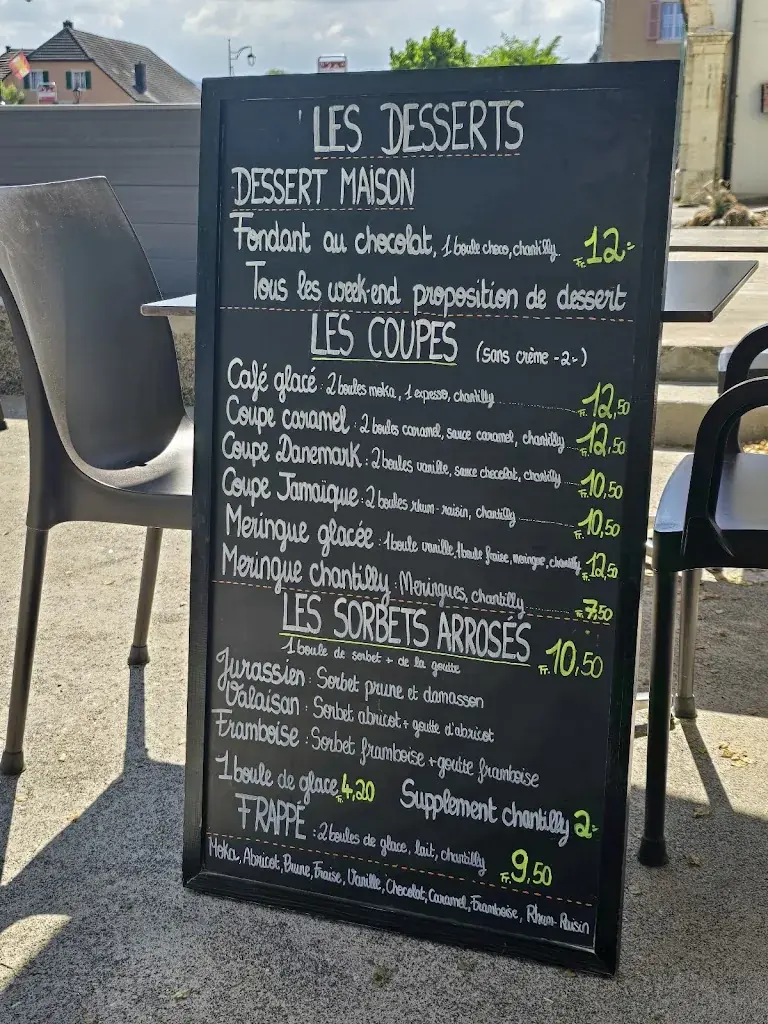 LES DESSERTS
DESSERT MAISON
Fondant au chocolat, 1 boule choco, chantilly. Fr. 12.-
Tous les week-end proposition de dessert
LES COUPES (sans crème -2.-)
Café glacé : 2 boules moka, 1 expresso, chantilly Fr. 12,50
Coupe caramel : 2 boules caramel, sauce caramel, chantilly Fr. 12,50
Coupe Danemark : 2 boules vanille, sauce chocolat, chantilly Fr. 10,50
Coupe Jamaïque : 2 boules rhum-raisin, chantilly Fr. 10,50
Meringue glacée : 1 boule vanille, 1 boule fraise, meringue, chantilly Fr. 12,50
Meringue chantilly : Meringues, chantilly Fr. 7,50
LES SORBETS ARROSÉS Fr. 10,50
1 boule de sorbet + de la goutte
Jurassien : Sorbet prune et damasson
Valaisan : Sorbet abricot + goutte d'abricot
Framboise : Sorbet framboise + goutte framboise
1 boule de glace Fr. 4,20 Supplement chantilly 2.-
FRAPPÉ : 2 boules de glace, lait, chantilly Fr. 9,50
Moka, Abricot, Prune, Fraise, Vanille, Chocolat, Caramel, Framboise, Rhum-Raisin